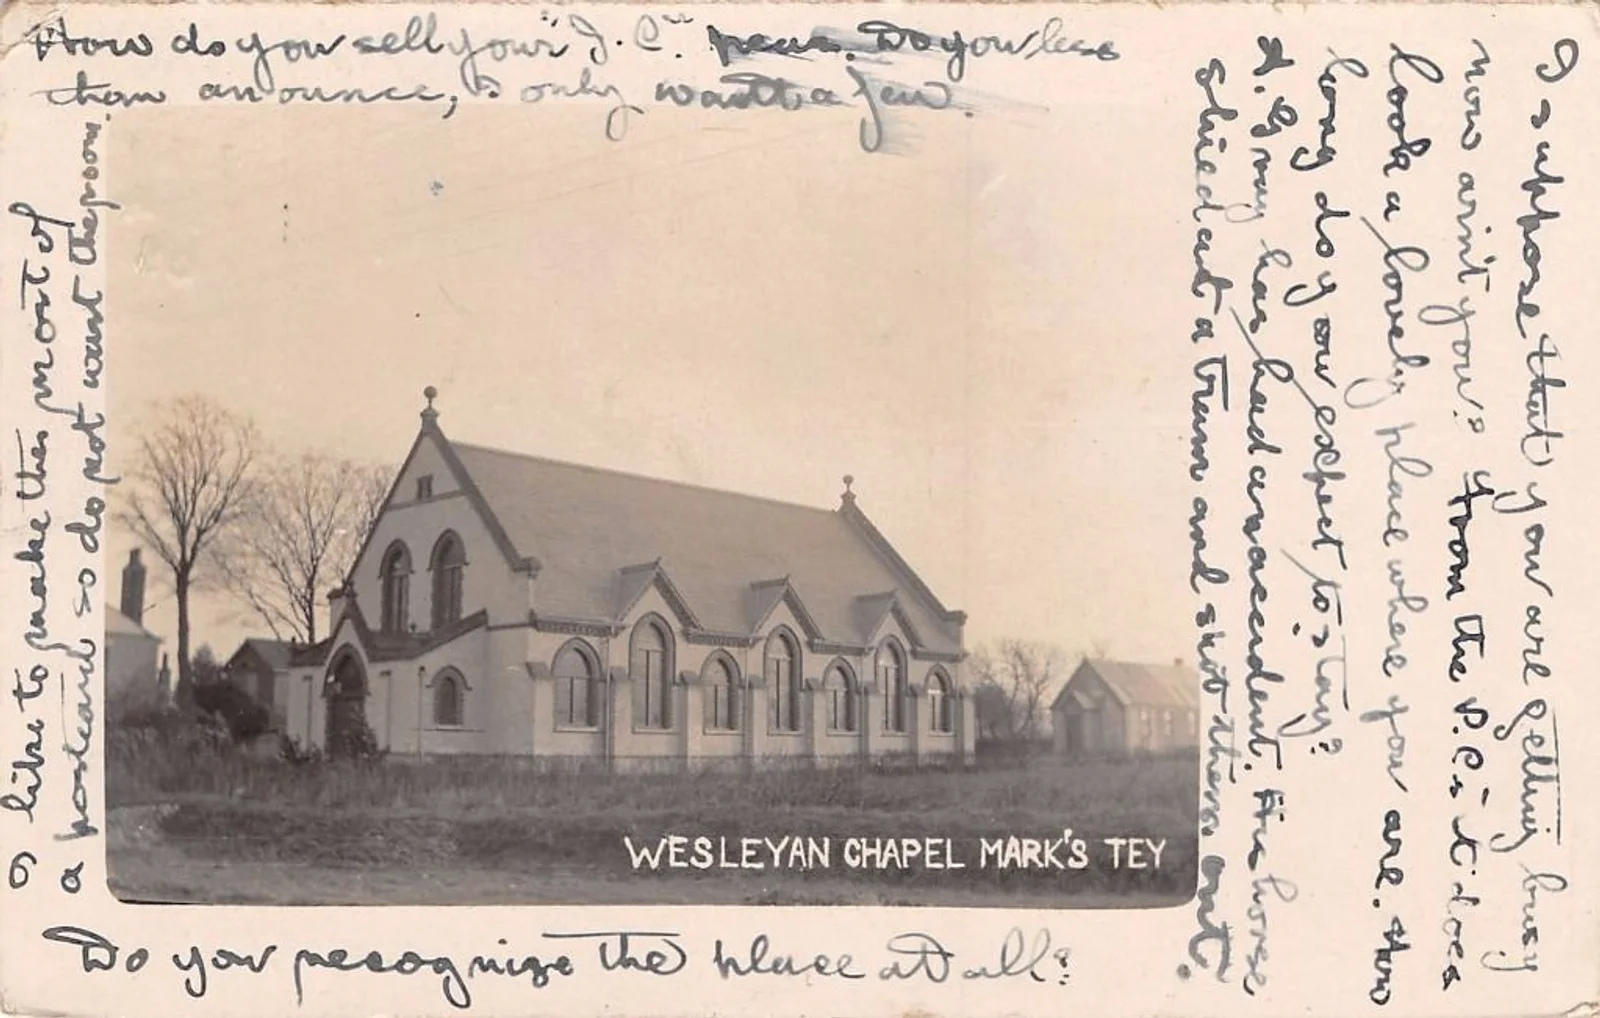 How do you sell your "J. C." peas. Do you less
than an ounce, I only want a few.
I like to make the most of
a postcard so do not want the room.
WESLEYAN CHAPEL MARK'S TEY
Do you recognize the place at all?
I suppose that you are getting busy
now ain't you? From the P.C's it does
look a lovely place where you are. How
long do you expect to stay?
A. Gray has had an accendent. His horse
shied at a tram and shot them out.